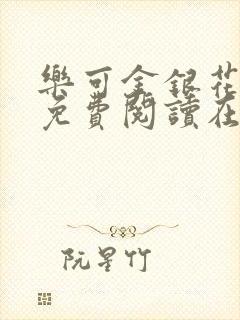 樂可金銀花
免費閱讀在
阮星竹